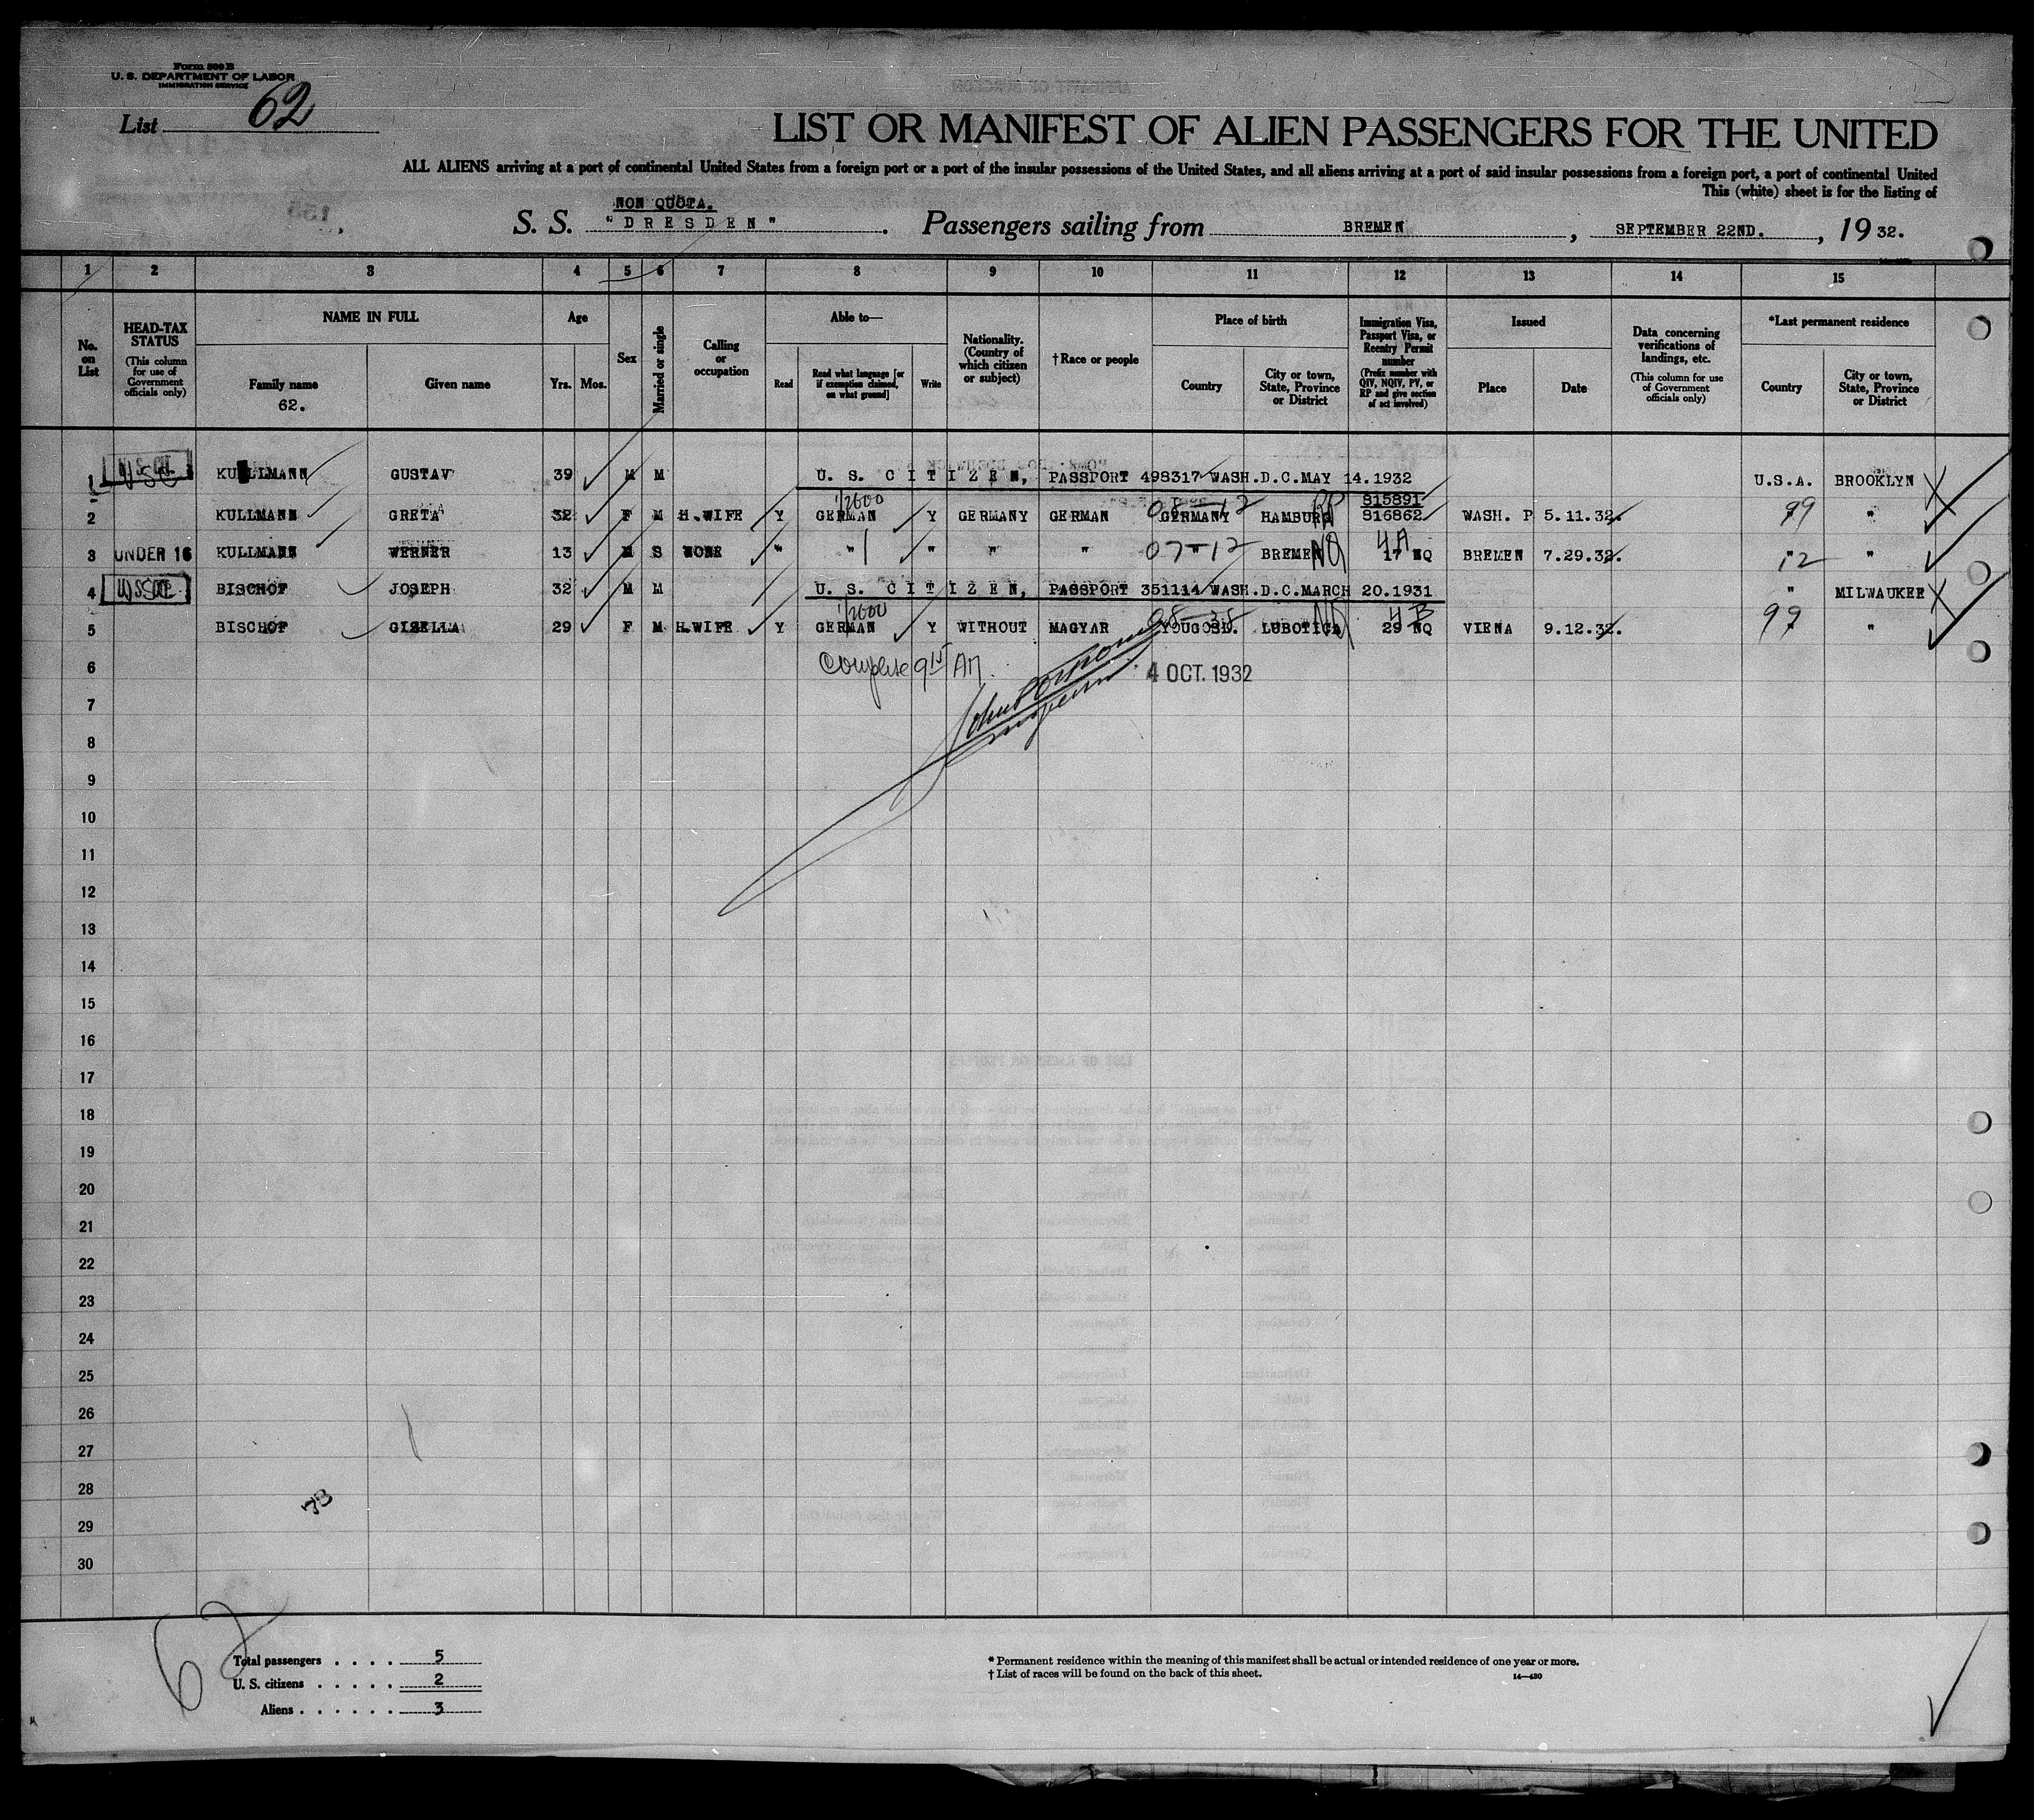 Form 500 B
U. S. DEPARTMENT OF LABOR
IMMIGRATION SERVICE
List 62
LIST OR MANIFEST OF ALIEN PASSENGERS FOR THE UNITED
ALL ALIENS arriving at a port of continental United States from a foreign port or a port of the insular possessions of the United States, and all aliens arriving at a port of said insular possessions from a foreign port, a port of continental United
This (white) sheet is for the listing of
NON QUOTA.
S. S. "DRESDEN". Passengers sailing from BREMEN, SEPTEMBER 22ND., 1932.
1 2 3 4 5 6 7 8 9 10 11 12 13 14 15
No. on List
HEAD-TAX STATUS
(This column for use of Government officials only)
NAME IN FULL
Family name
62.
Given name
Age
Yrs. Mos.
Sex
Married or single
Calling or occupation
Able to—
Read
Read what language [or if exemption claimed, on what ground]
Write
Nationality. (Country of which citizen or subject)
†Race or people
Place of birth
Country
City or town, State, Province or District
Immigration Visa, Passport Visa, or Reentry Permit number
(Prefix number with QIV, NQIV, PV, or RP and give section of act involved)
Issued
Place
Date
Data concerning verifications of landings, etc.
(This column for use of Government officials only)
*Last permanent residence
Country
City or town, State, Province or District
1 USC KULLMANN GUSTAV 39 M M U. S. CITIZEN, PASSPORT 498317 WASH.D.C.MAY 14.1932 U.S.A. BROOKLYN
815891
2 KULLMANN GRETA 32 F M H.WIFE Y GERMAN Y GERMANY GERMAN GERMANY HAMBURG RP 816862 WASH. P 5.11.32. 99 "
3 UNDER 16 KULLMANN WERNER 13 M S NONE " " " " " " BREMEN NQ 4A 17 NQ BREMEN 7.29.32. 12 "
4 BISCHOF JOSEPH 32 M M U. S. CITIZEN, PASSPORT 351114 WASH.D.C.MARCH 20.1931 " MILWAUKEE
5 BISCHOF GISELLA 29 F M H.WIFE Y GERMAN Y WITHOUT MAGYAR YOUGOSL. LUBOTICA NQ 4B 29 NQ VIENA 9.12.32. 99 "
6 4 OCT. 1932
7
8
9
10
11
12
13
14
15
16
17
18
19
20
21
22
23
24
25
26
27
28
29
30
62
Total passengers . . . . 5
U. S. citizens . . . . . 2
Aliens . . . . . . 3
* Permanent residence within the meaning of this manifest shall be actual or intended residence of one year or more.
† List of races will be found on the back of this sheet.
14—430